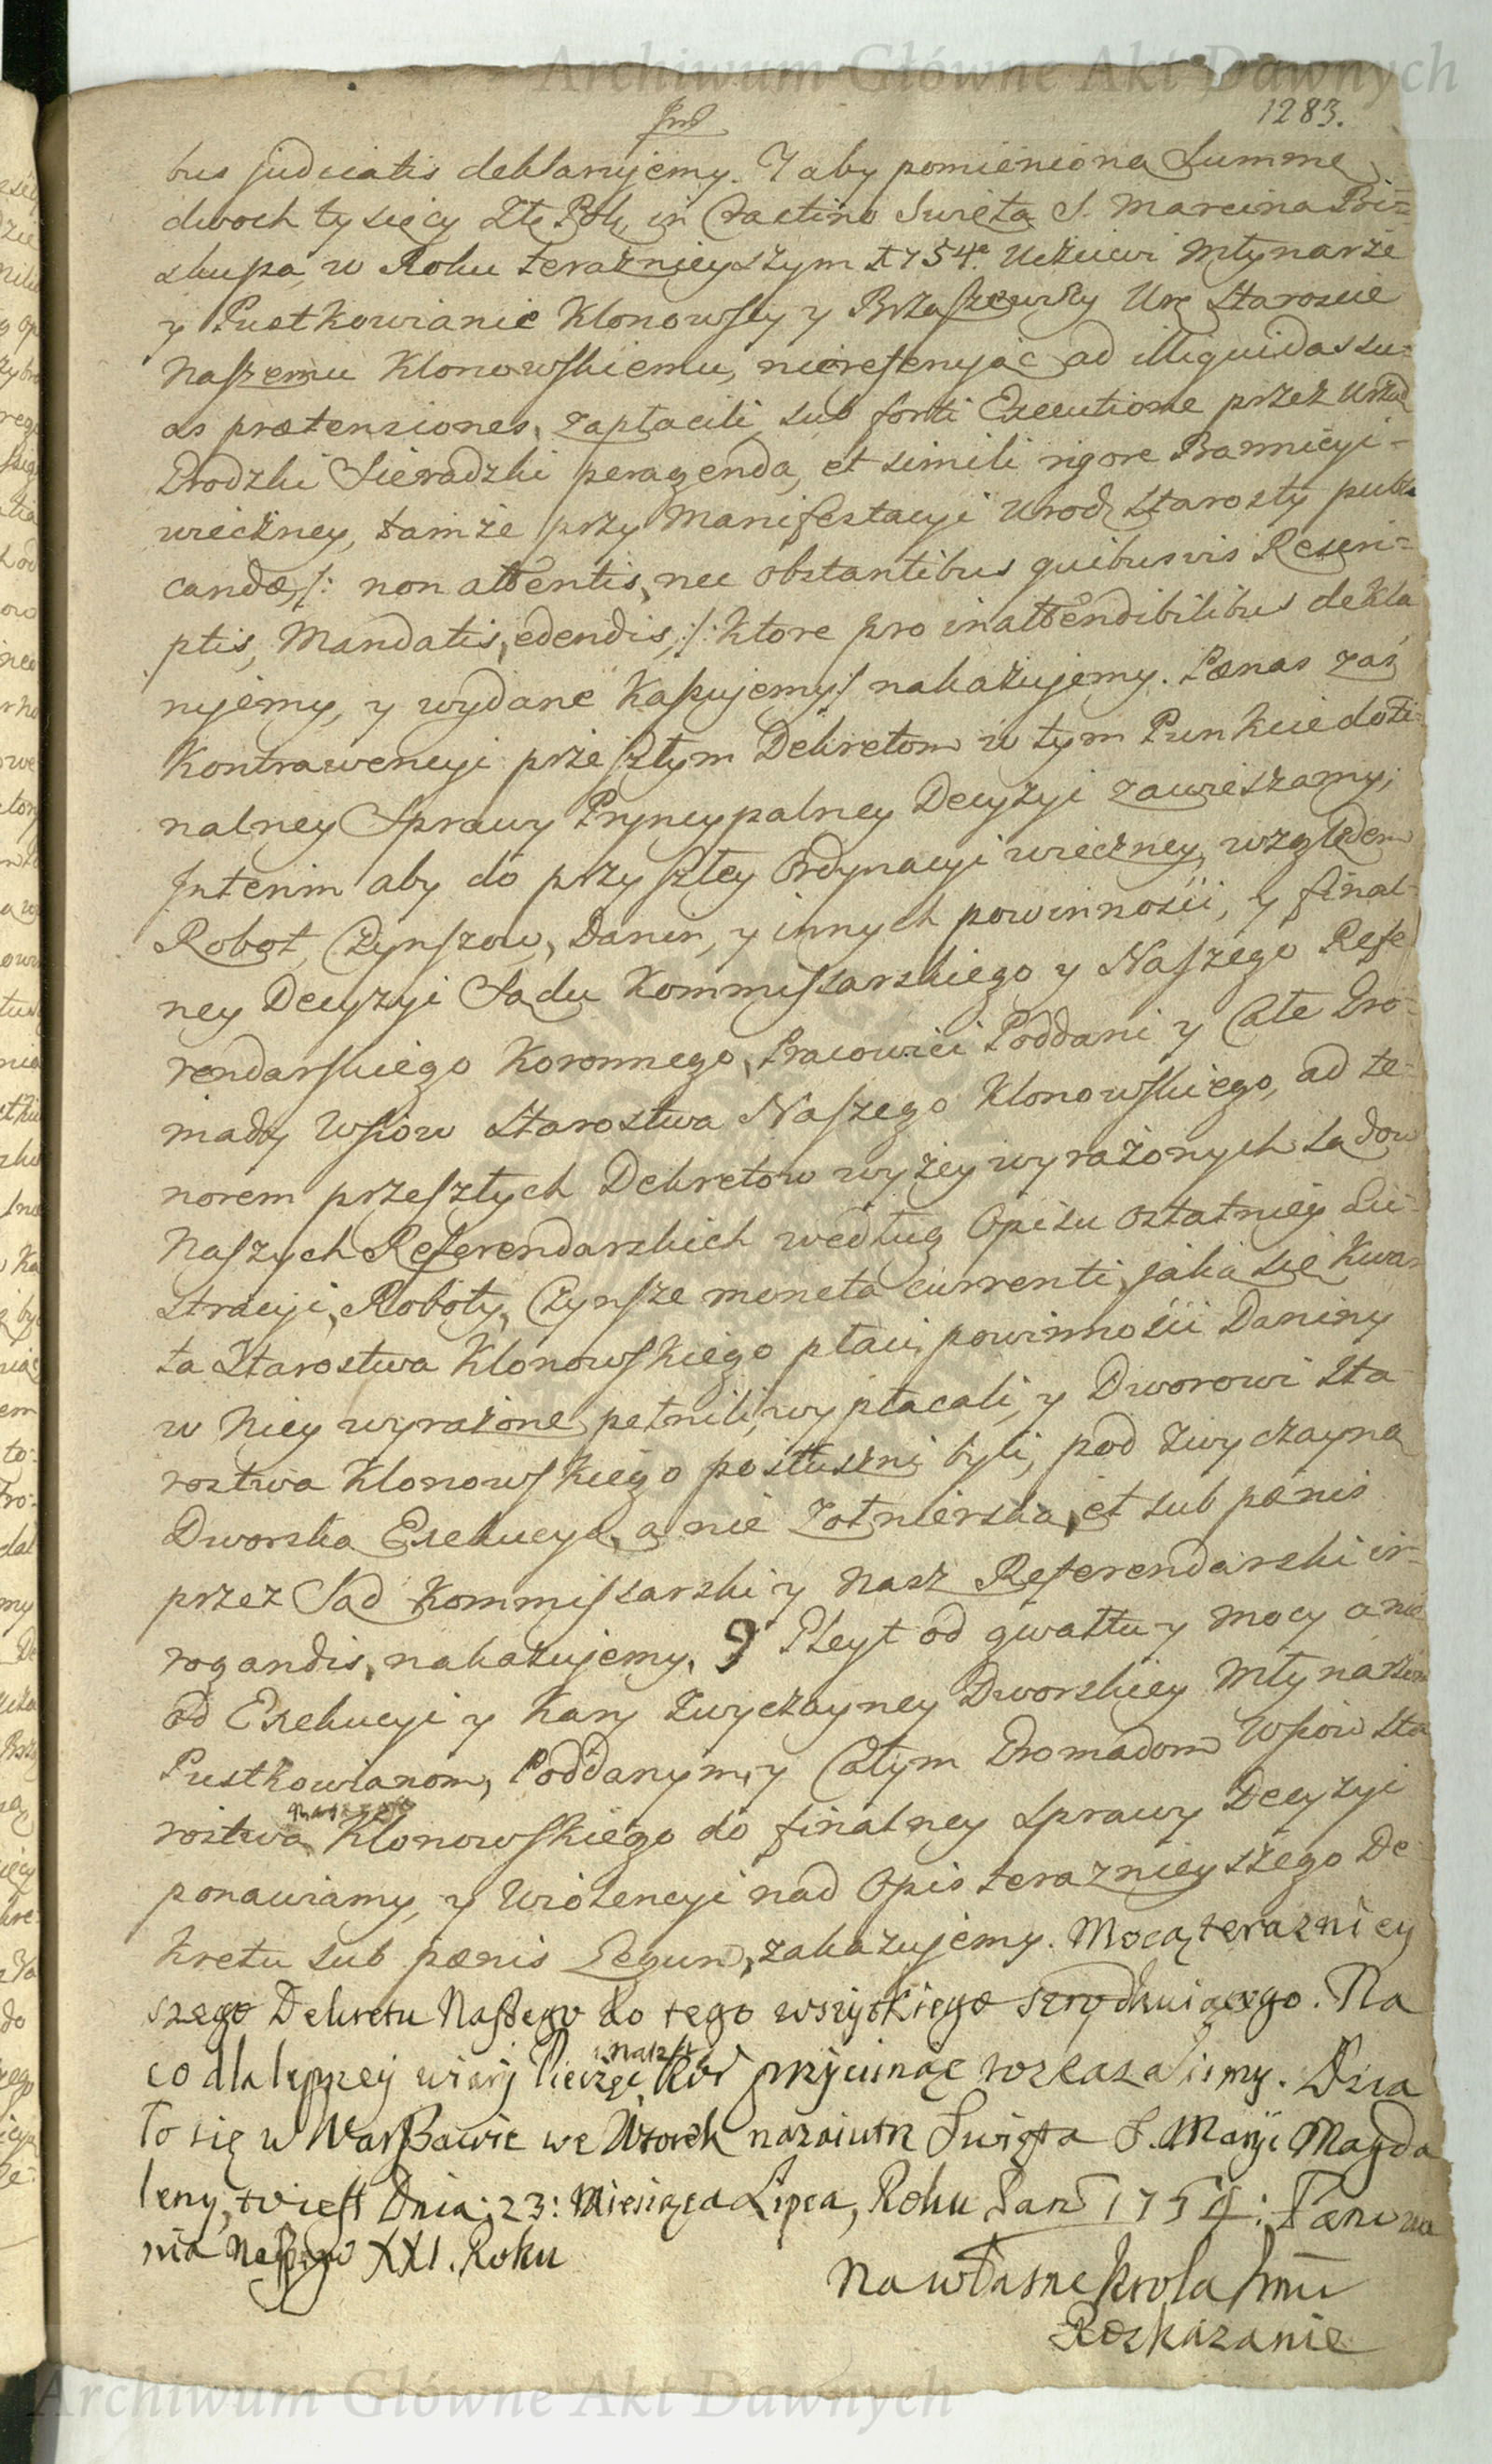 Archiwum Główne Akt Dawnych
1283.
bus judicatis deklarujemy. Y aby pomienioną Summę
dwoch tysięcy Złt. Pol. in Crastino Swięta S. Marcina Bi-
skupa, w Roku teraznieyszym 1754. Uczciwi Młynarze
y Pustkowianie Klonowscy y Brzaszewscy Ur. Staroscie
Naszemu Klonowskiemu, niereferując ad illiquidas su-
as prætensiones, zapłacili, sub forti Executione przez Urząd
Grodzki Sieradzki peragenda, et simili rigore Bannicyi
wieczney, tamże przy Manifestacyi Urodz. Starosty publi
candæ, /: non attentis, nec obstantibus quibusvis Rescri-
ptis, Mandatis, edendis, :/: ktore pro inattendibilibus dekla
rujemy, y wydane Kassujemy :/ nakazujemy. Pœnas zaś
Kontrawencyi przeszłym Dekretom w tym Punkcie do fi-
nalney Sprawy Pryncypalney Decyzyi zawieszamy;
Interim aby do przyszłey Ordynacyi wieczney, względem
Robot, Czynszow, Danin, y innych powinności, y final-
ney Decyzyi Sądu Kommissarskiego y Naszego Refe
rendarskiego Koronnego, Pracowici Poddani y Całe Gro-
mady Wsiow Starostwa Naszego Klonowskiego, ad te-
norem przeszłych Dekretow wyżey wyrażonych Sądow
Naszych Referendarskich według Opisu ostatniey Lu-
stracyi, Roboty, Czynsze moneta currenti, jaką się Kwar
ta Starostwa Klonowskiego płaci, powinności Daniny
w Niey wyrażone pełnili, wypłacali, y Dworowi Sta-
rostwa Klonowskiego posłuszni byli, pod zwyczayną
Dworską Exekucyą, a nie Żołnierską, et sub pœnis
przez Sąd Kommissarski y Nasz Referendarski ir-
rogandis, nakazujemy. Y Gleyt od gwałtu y mocy a nie
od Exekucyi y Kary zwyczayney Dworskiey Młynarzom
Pustkowianom, Poddanym, y Całym Gromadom Wsiow Sta
rostwa Naszego Klonowskiego do finalney Sprawy Decyzyi
ponawiamy, y Wiolencyi nad Opis teraznieyszego De-
kretu sub pœnis Legum, zakazujemy. Mocą teraznięy
szego Dekretu Naszego do tego wszystkiego szrodkuiącego. Na
co dla lepszey wiary Pieczęć Naszą Kor. przycisnąć rozkazalismy. Dzia
ło się w Warszawie we Wtorek nazaiutrz Swięta S. Maryi Magda
leny, to iest Dnia: 23: Miesiąca Lipca, Roku Pań. 1754: Panowa
nia Naszego XXI. Roku
Na własne Krola Jmci
Rozkazanie
Archiwum Główne Akt Dawnych